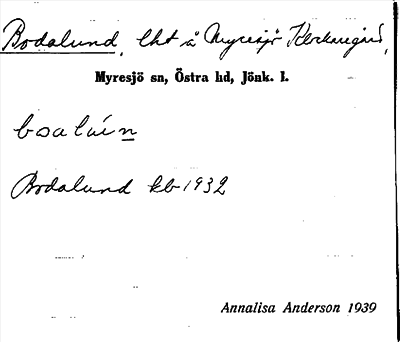 Bodalund, lht å Myresjö Klockaregård,
Myresjö sn, Östra hd, Jönk. l.
boalún
Bodalund kb 1932
Annalisa Anderson 1939